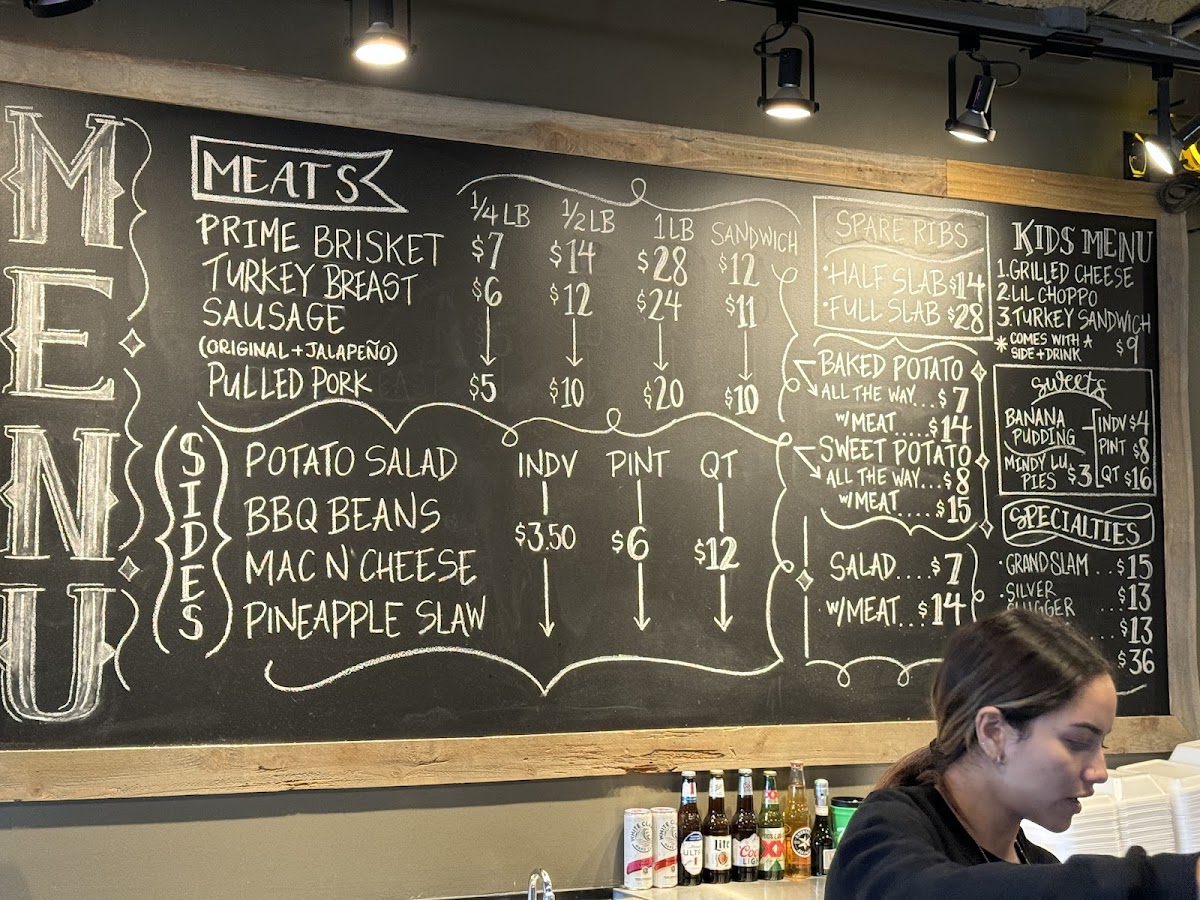 MENU
MEATS
1/4 LB 1/2 LB 1 LB SANDWICH
PRIME BRISKET $7 $14 $28 $12
TURKEY BREAST $6 $12 $24 $11
SAUSAGE
(ORIGINAL + JALAPEÑO)
PULLED PORK $5 $10 $20 $10
SIDES
INDV PINT QT
POTATO SALAD
BBQ BEANS
$3.50 $6 $12
MAC N' CHEESE
PINEAPPLE SLAW
SPARE RIBS
•HALF SLAB $14
•FULL SLAB $28
BAKED POTATO
ALL THE WAY... $7
W/MEAT.... $14
SWEET POTATO
ALL THE WAY... $8
W/MEAT.... $15
SALAD.... $7
W/MEAT... $14
KIDS MENU
1. GRILLED CHEESE
2. LIL CHOPPO
3. TURKEY SANDWICH
* COMES WITH A
SIDE + DRINK $9
Sweets
BANANA
PUDDING
INDV $4
PINT $8
QT $16
MINDY LU
PIES $3
SPECIALTIES
•GRAND SLAM .. $15
•SILVER
SLUGGER ... $13
.... $13
$36
WHITE CLAW
WHITE CLAW
ULTRA
Lite
Coors
LIGHT
XX